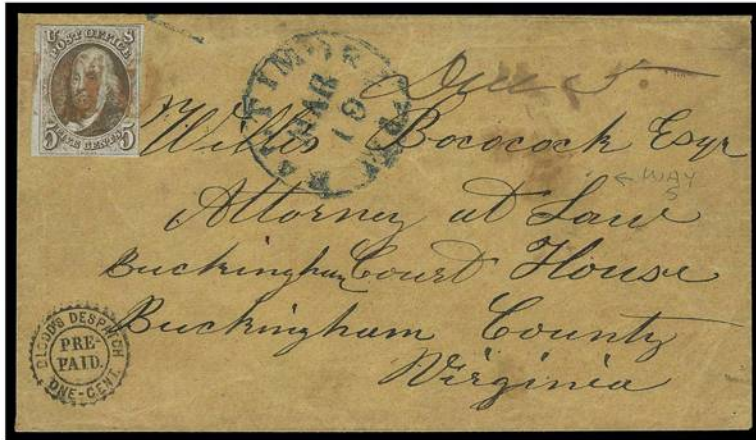 U S
POST OFFICE
5 FIVE CENTS 5
BALTIMORE
MAR
19
Due 5
Willis Bocock Esqr
← WAY
5
Attorney at Law
Buckingham Court House
Buckingham County
Virginia
D.O. BLOOD'S DESPATCH
PRE-
PAID.
ONE-CENT.